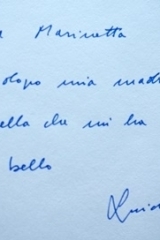 a Marinetta
dopo mia madre
ella che mi ha
bello
Luid